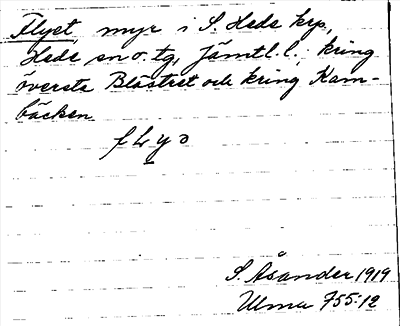 Flyet, myr i S. Hede krp,
Hede sn o. tg, Jämtl. l. kring
översta Blästret och kring Kam-
bäcken
S. Åsander 1919
Ulma 755:12